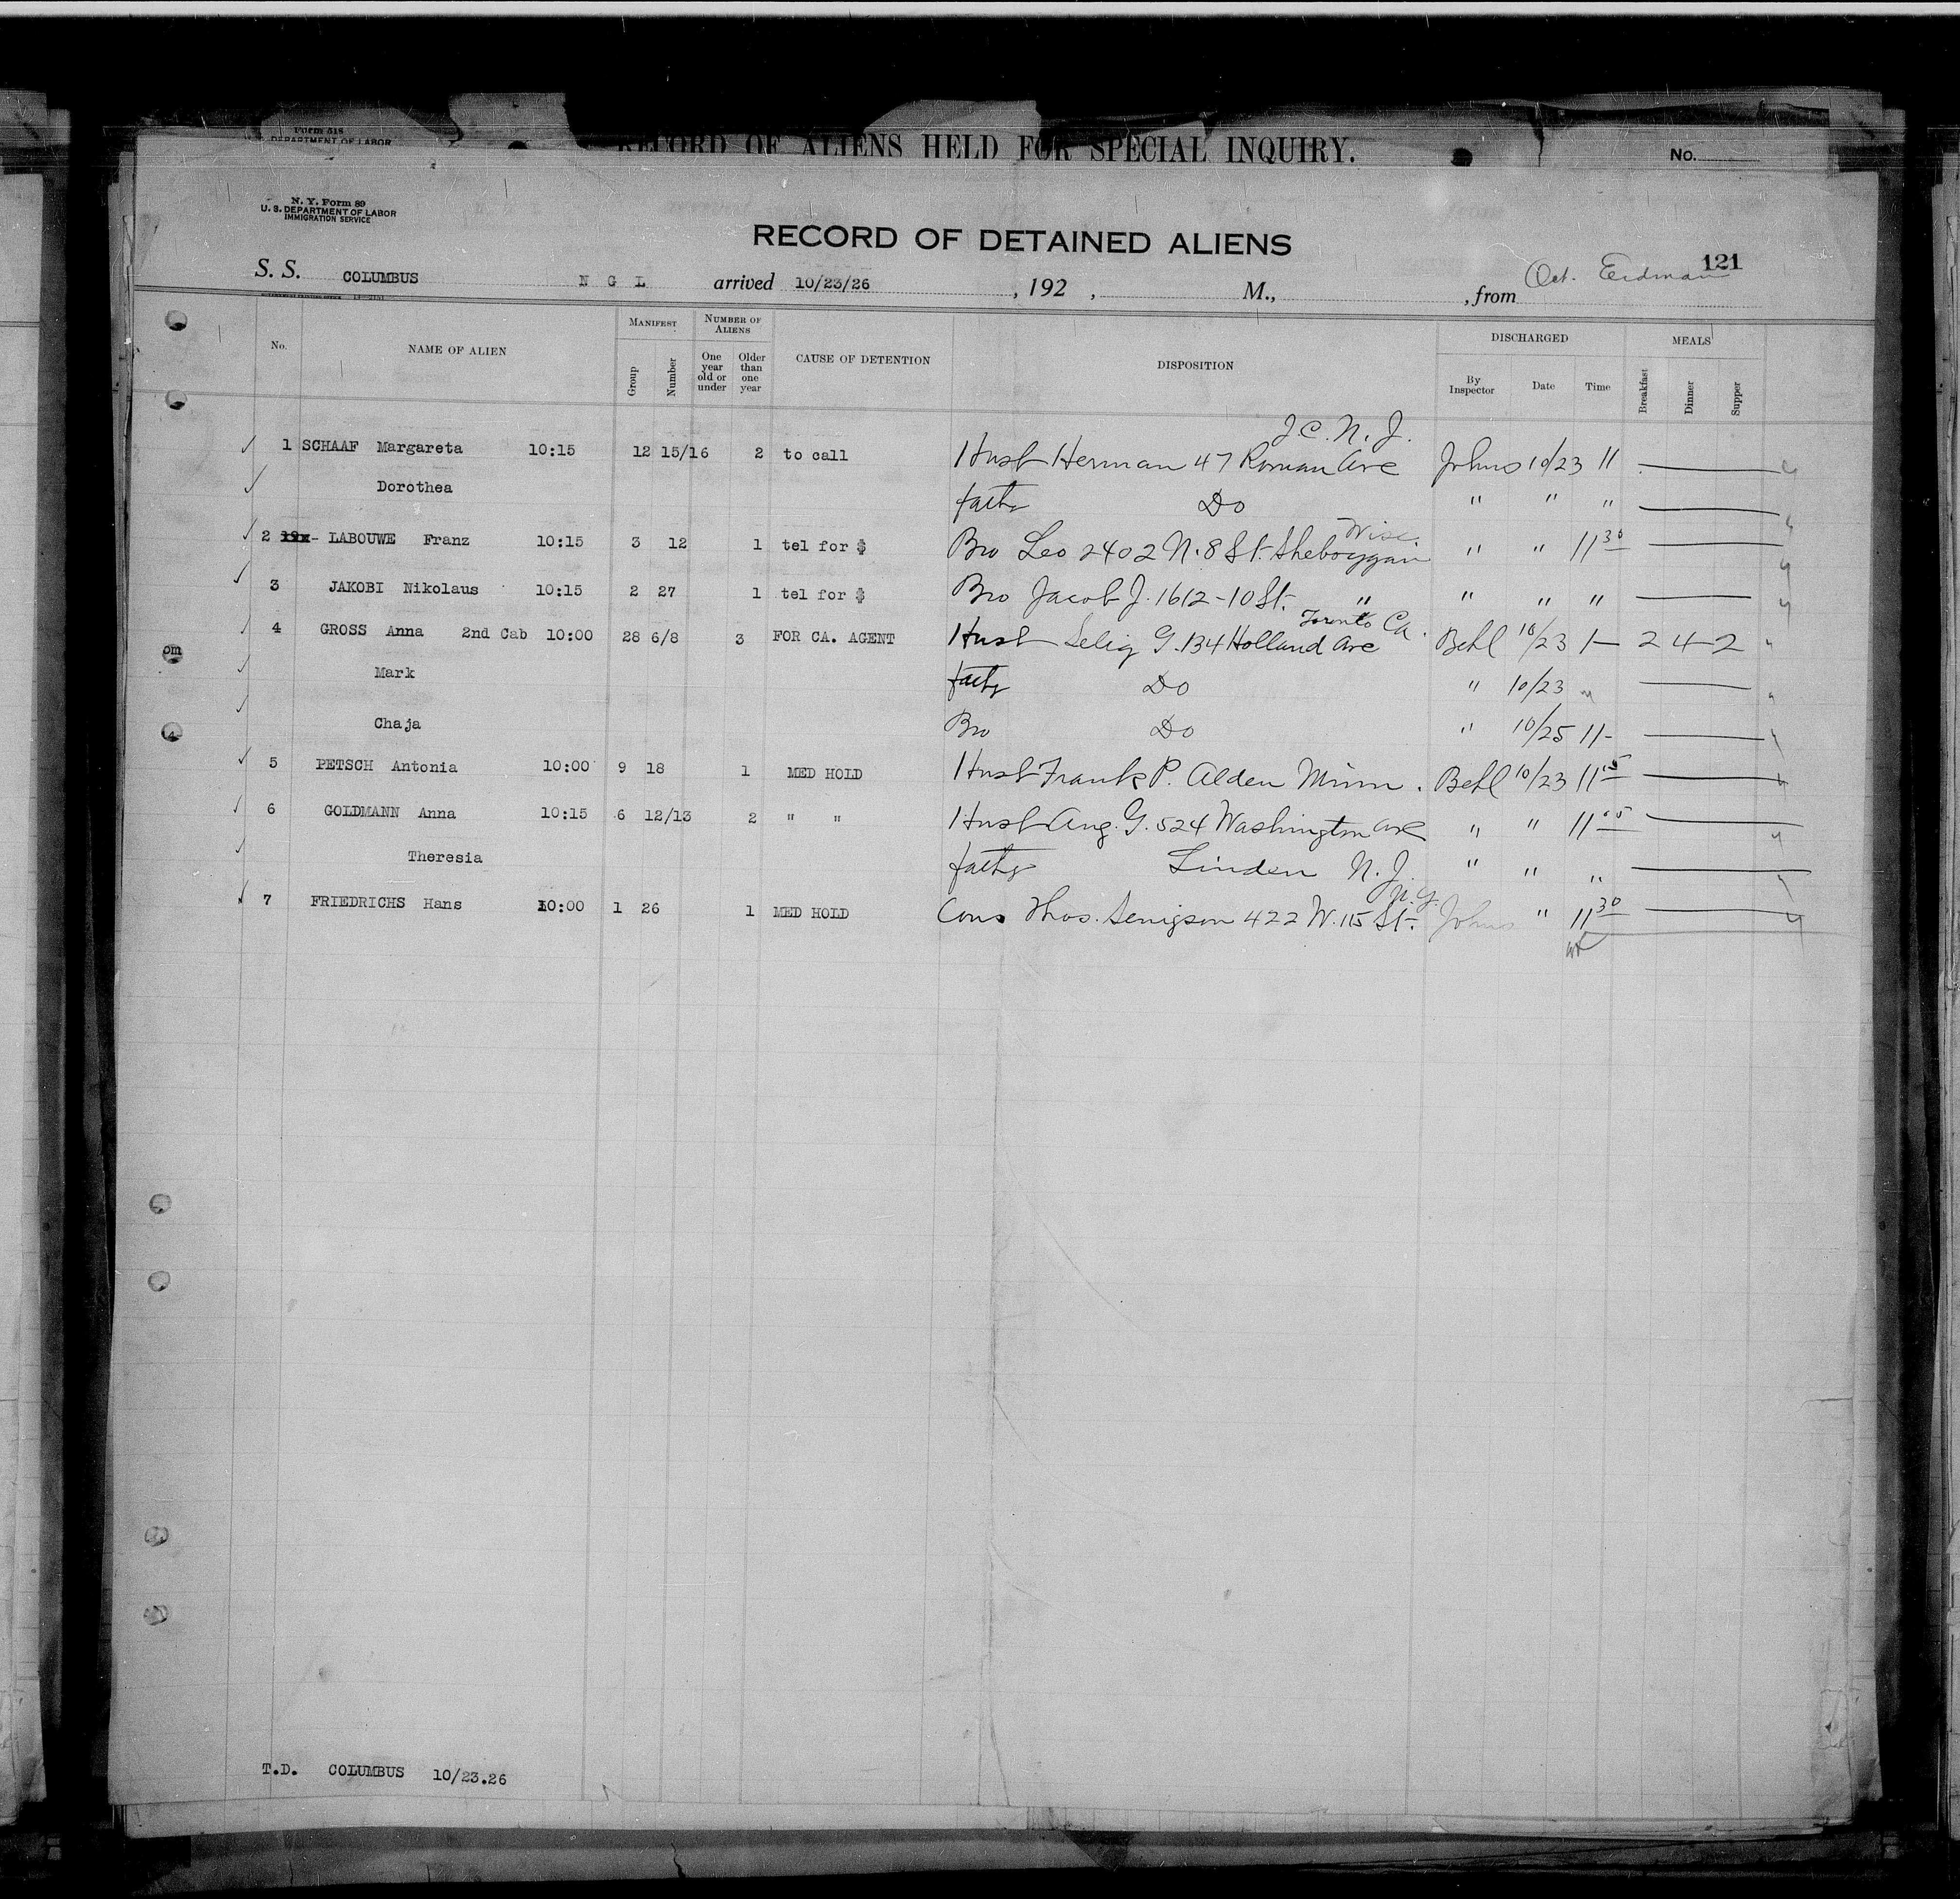 Form 518
DEPARTMENT OF LABOR
RECORD OF ALIENS HELD FOR SPECIAL INQUIRY.
No.
N. Y. Form 89
U. S. DEPARTMENT OF LABOR
IMMIGRATION SERVICE
RECORD OF DETAINED ALIENS
121
S. S. COLUMBUS N G L arrived 10/23/26 , 192 , M., , from Oct. Erdman
No. NAME OF ALIEN MANIFEST Group Number NUMBER OF ALIENS One year old or under Older than one year CAUSE OF DETENTION DISPOSITION DISCHARGED By Inspector Date Time MEALS Breakfast Dinner Supper
J.C. N.J.
1 SCHAAF Margareta 10:15 12 15/16 2 to call Husb Herman 47 Roman Ave Johns 10/23 11
Dorothea fathr Do " " "
Wisc.
2 LABOUWE Franz 10:15 3 12 1 tel for $ Bro Leo 2402 N. 8 St. Sheboygan " " 11 30
3 JAKOBI Nikolaus 10:15 2 27 1 tel for $ Bro Jacob J. 1612-10 St. " " " "
Toronto Ca.
4 GROSS Anna 2nd Cab 10:00 28 6/8 3 FOR CA. AGENT Husb Selig G. 134 Holland Ave Behl 10/23 1- 2 4 2
om
Mark fathr Do " 10/23 "
Chaja Bro Do " 10/25 11-
5 PETSCH Antonia 10:00 9 18 1 MED HOLD Husb Frank P. Alden Minn. Behl 10/23 11 15
6 GOLDMANN Anna 10:15 6 12/13 2 " " Husb Aug. G. 524 Washington Ave " " 11
Theresia fathr Linden N.J. " " "
N.Y.
7 FRIEDRICHS Hans 10:00 1 26 1 MED HOLD Cous Thos. 422 W. 115 St. Johns " 11 30
T.D. COLUMBUS 10/23.26